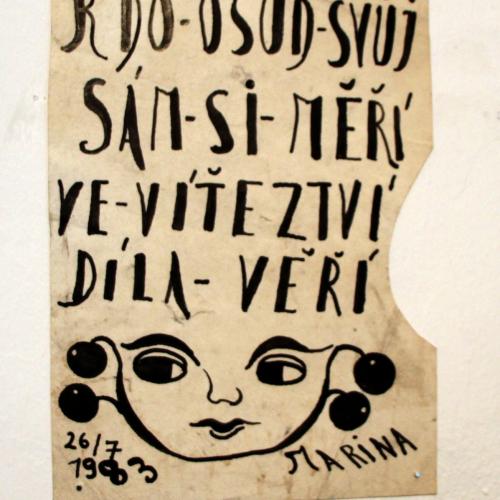 KDO-OSUD-SVŮJ
SÁM-SI-MĚŘÍ
VE-VÍŤEZTVÍ
DÍLA-VĚŘÍ
26/7
1983
MARINA